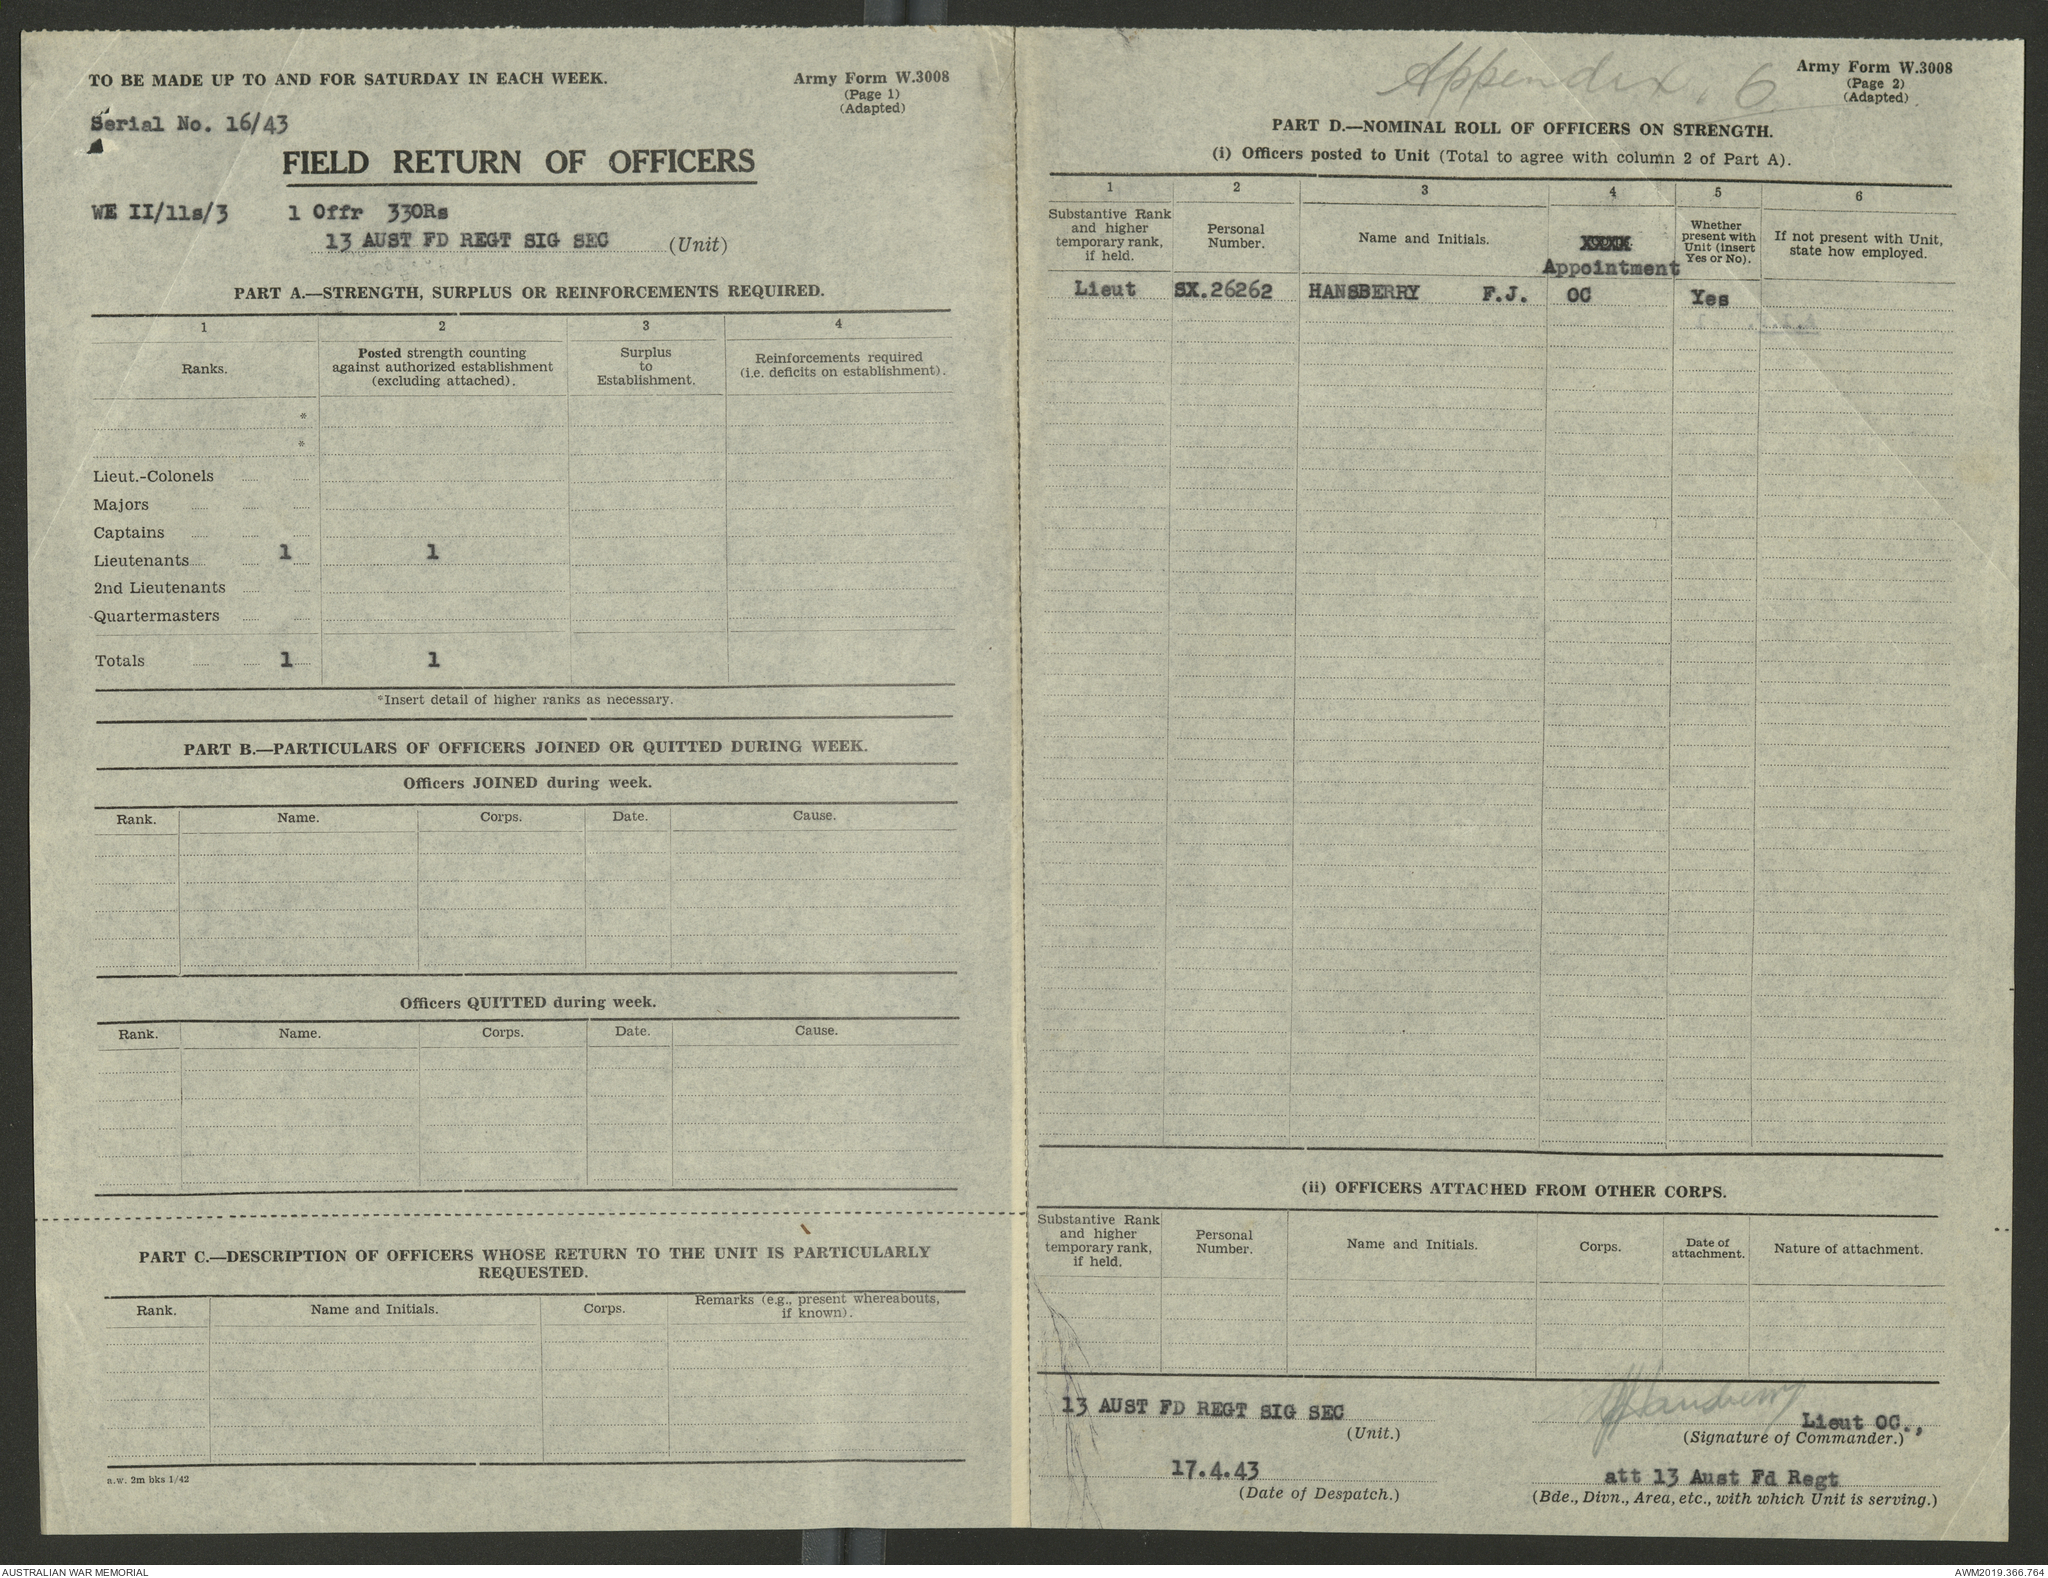 TO BE MADE UP TO AND FOR SATURDAY IN EACH WEEK.
Army Form W.3008
(Page 1)
(Adapted)
Serial No. 16/43
FIELD RETURN OF OFFICERS
WE II/11s/3 1 Offr 33ORs
13 AUST FD REGT SIG SEC (Unit)
PART A.—STRENGTH, SURPLUS OR REINFORCEMENTS REQUIRED.
1 2 3 4
Ranks.
Posted strength counting
against authorized establishment
(excluding attached).
Surplus
to
Establishment.
Reinforcements required
(i.e. deficits on establishment).
*
*
Lieut.-Colonels
Majors
Captains
Lieutenants 1 1
2nd Lieutenants
Quartermasters
Totals 1 1
*Insert detail of higher ranks as necessary.
PART B.—PARTICULARS OF OFFICERS JOINED OR QUITTED DURING WEEK.
Officers JOINED during week.
Rank. Name. Corps. Date. Cause.
Officers QUITTED during week.
Rank. Name. Corps. Date. Cause.
PART C.—DESCRIPTION OF OFFICERS WHOSE RETURN TO THE UNIT IS PARTICULARLY
REQUESTED.
Rank. Name and Initials. Corps.
Remarks (e.g., present whereabouts,
if known).
a.w. 2m bks 1/42
Appendix. 6
Army Form W.3008
(Page 2)
(Adapted)
PART D.—NOMINAL ROLL OF OFFICERS ON STRENGTH.
(i) Officers posted to Unit (Total to agree with column 2 of Part A).
1 2 3 4 5 6
Substantive Rank
and higher
temporary rank,
if held.
Personal
Number.
Name and Initials.
XXXXX
Appointment
Whether
present with
Unit (insert
Yes or No).
If not present with Unit,
state how employed.
Lieut SX.26262 HANSBERRY F.J. OC Yes
(ii) OFFICERS ATTACHED FROM OTHER CORPS.
Substantive Rank
and higher
temporary rank,
if held.
Personal
Number.
Name and Initials.
Corps.
Date of
attachment.
Nature of attachment.
13 AUST FD REGT SIG SEC
(Unit.)
FJHansberry
Lieut OC.,
(Signature of Commander.)
17.4.43
(Date of Despatch.)
att 13 Aust Fd Regt
(Bde., Divn., Area, etc., with which Unit is serving.)
AUSTRALIAN WAR MEMORIAL
AWM2019.366.764